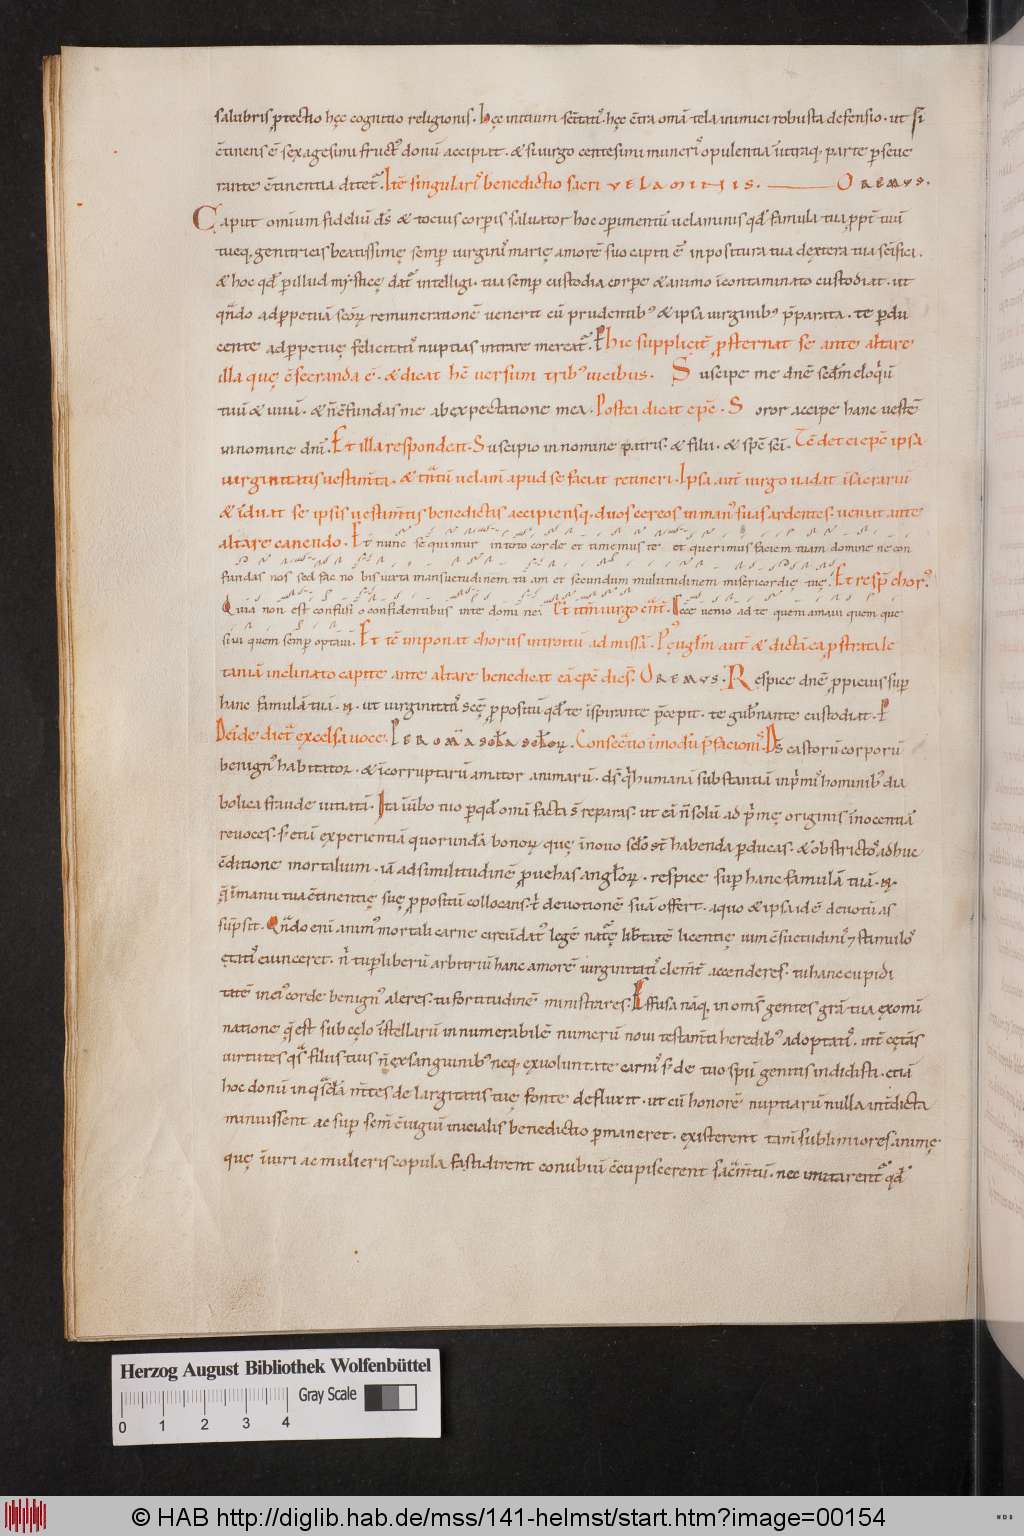 salubris ꝓtectio hęc cognitio religionis. hęc initium sc̄itatis. hęc c̄tra omā tela inimici robusta defensio. ut si
c̄tinens ē sexagesimi fructꝰ donū accipiat. & si uirgo centesimi munerꝭ opulentia. utraq; parte perseue
rante c̄tinentia ditetꝰ. Itē singularꝭ benedictio sacri VELAMINIS. OREMUS.
Caput omīum fideliū dꝰs & tocius corꝑis saluator hoc operimentū uelaminis qd̄ famula tua ꝓpt̄ tuū
tueq; genitricis beatissimę semꝑ uirginis marię amorē suo capiti ē inpositura tua dextera tua sc̄ifica.
& hoc qd̄ ꝑ illud mysticę datꝰ intelligi. tua semꝑ custodia corpe & animo īcontaminato custodiat. ut
qn̄do ad ꝑpetuā sc̄oꝝ remunerationē uenerit cū prudentibꝰ & ipsa uirginibꝰ p̄parata. te ꝑdu
cente ad ꝑpetuę felicitatis nuptias intrare mereatꝰ. P hic supplicit̄ ꝓsternat se ante altare
illa quę c̄secranda ē. & dicat hc̄ uersum tribꝰ uicibus. Suscipe me dn̄e scd̄m eloqͥū
tuū & uiuā. & n̄ c̄fundas me ab expectatione mea. Postea dicat epc̄. Soror accipe hanc uestē
in nomine dn̄i. Et illa respondeat. Suscipio in nomine patris. & filii. & spc̄ sc̄i. Tc̄ det ei epc̄ ipsa
uirginitatis uestim̄ta. & tn̄tū uelam̄ apud se faciat retineri. Ipsa aut̄ uirgo uadat ī sacrariū
& īduat se ipsis uestim̄tis benedictis accipiensq; duos cereos in manꝰ suas ardentes. ueniat ante
altare canendo. Et nunc sequimur in toto corde et timemus te et querimus faciem tuam domine ne con
fundas nos sed fac no bis iuxta mansuetudinem tu am et secundum multitudinem misericordię tuę. Et resp̄ chorꝰ.
Quia non est confusi o confidentibus in te domi ne. Ecce uenio ad te quem amaui quem que
siui quem semꝑ optaui. Et tc̄ imponat chorus introitū ad missā. P ęuḡlm aut̄ & dictā ea ꝓstrata le
taniā inclinato capite ante altare benedicat eā epc̄ dicēs. OREMUS. Respice dn̄e ꝓpicius super
hanc famulā tuā. N. ut uirginitatis sc̄ę ꝓpositū qd̄ te īspirante p̄cepit. te gub̄nante custodiat. P
Deīde dicat excelsa uoce. PER OMIA SCLA SCLOꝝ. Consecͣtio ī modū p̄facionis. Ds̄ castorū corporū
benignꝰ habitator. & īcorruptarū amator animarū. ds̄ qͥ humanā substantiā in p̄mis hominibꝰ dia
bolica fraude uitiatā. Ita ī uerbo tuo ꝑ qd̄ omīa facta s̄t reparas. ut eā n̄ solū ad p̄mę originis īnocentiā
reuoces. s; etiā experientiā quorundā bonoꝝ quę ī nouo sclō st̄ habenda ꝑducas. & obstrictos adhuc
c̄ditione mortalium. iā ad similitudinē ꝓuehas angloꝝ. respice super hanc famulā tuā. N.
quę ī manu tua c̄tinentię suę ꝓpositū collocans. t̄ deuotionē suā offert. a quo & ipsa idē deuotū as
sūpsit. Qn̄do enī animꝰ mortali carne circūdatꝰ legē natꝰę libertatē licentię uim c̄suetudinis & stimulos
ętatis euinceret. nͥ tu ꝑ liberū arbitriū hanc amorē uirginitatis clem̄t̄ accenderes. tu hanc cupidi
tatē in eiꝰ corde benignꝰ aleres. tu fortitudinē ministrares. Effusa nāq; in omēs gentes gr̄a tua ex omī
natione quę est sub cęlo ī stellarū innumerabilē numerū noui testam̄ti heredibꝰ adoptatis. inter cęteras
uirtutes qͣs filiis tuis n̄ ex sanguinibꝰ neq; ex uoluntate carnis s; de tuo spū genitis indidisti. etiā
hoc donū in qͣsdā mentes de largitatis tuę fonte defluxit. ut cū honorē nuptiarū nulla int̄dicta
minuissent ac super sc̄m c̄iugiū inicialis benedictio ꝑmaneret. existerent tam̄ sublimiores animę
quę ī uiri ac mulieris copula fastidirent conubiū c̄cupiscerent sacͣm̄tū. nec imitarent̄ qd̄
Herzog August Bibliothek Wolfenbüttel
Gray Scale
0 1 2 3 4
© HAB http://diglib.hab.de/mss/141-helmst/start.htm?image=00154